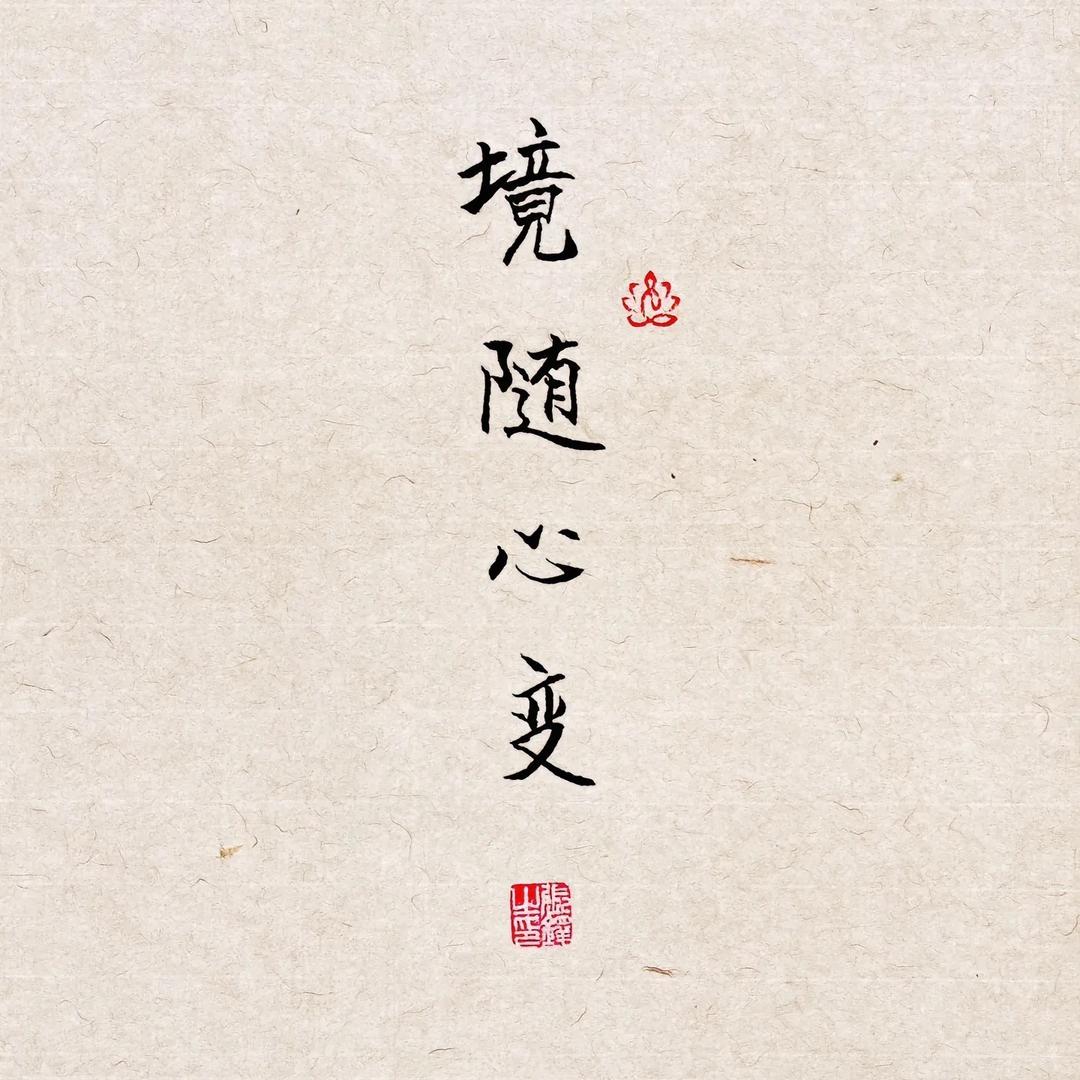 境随心变